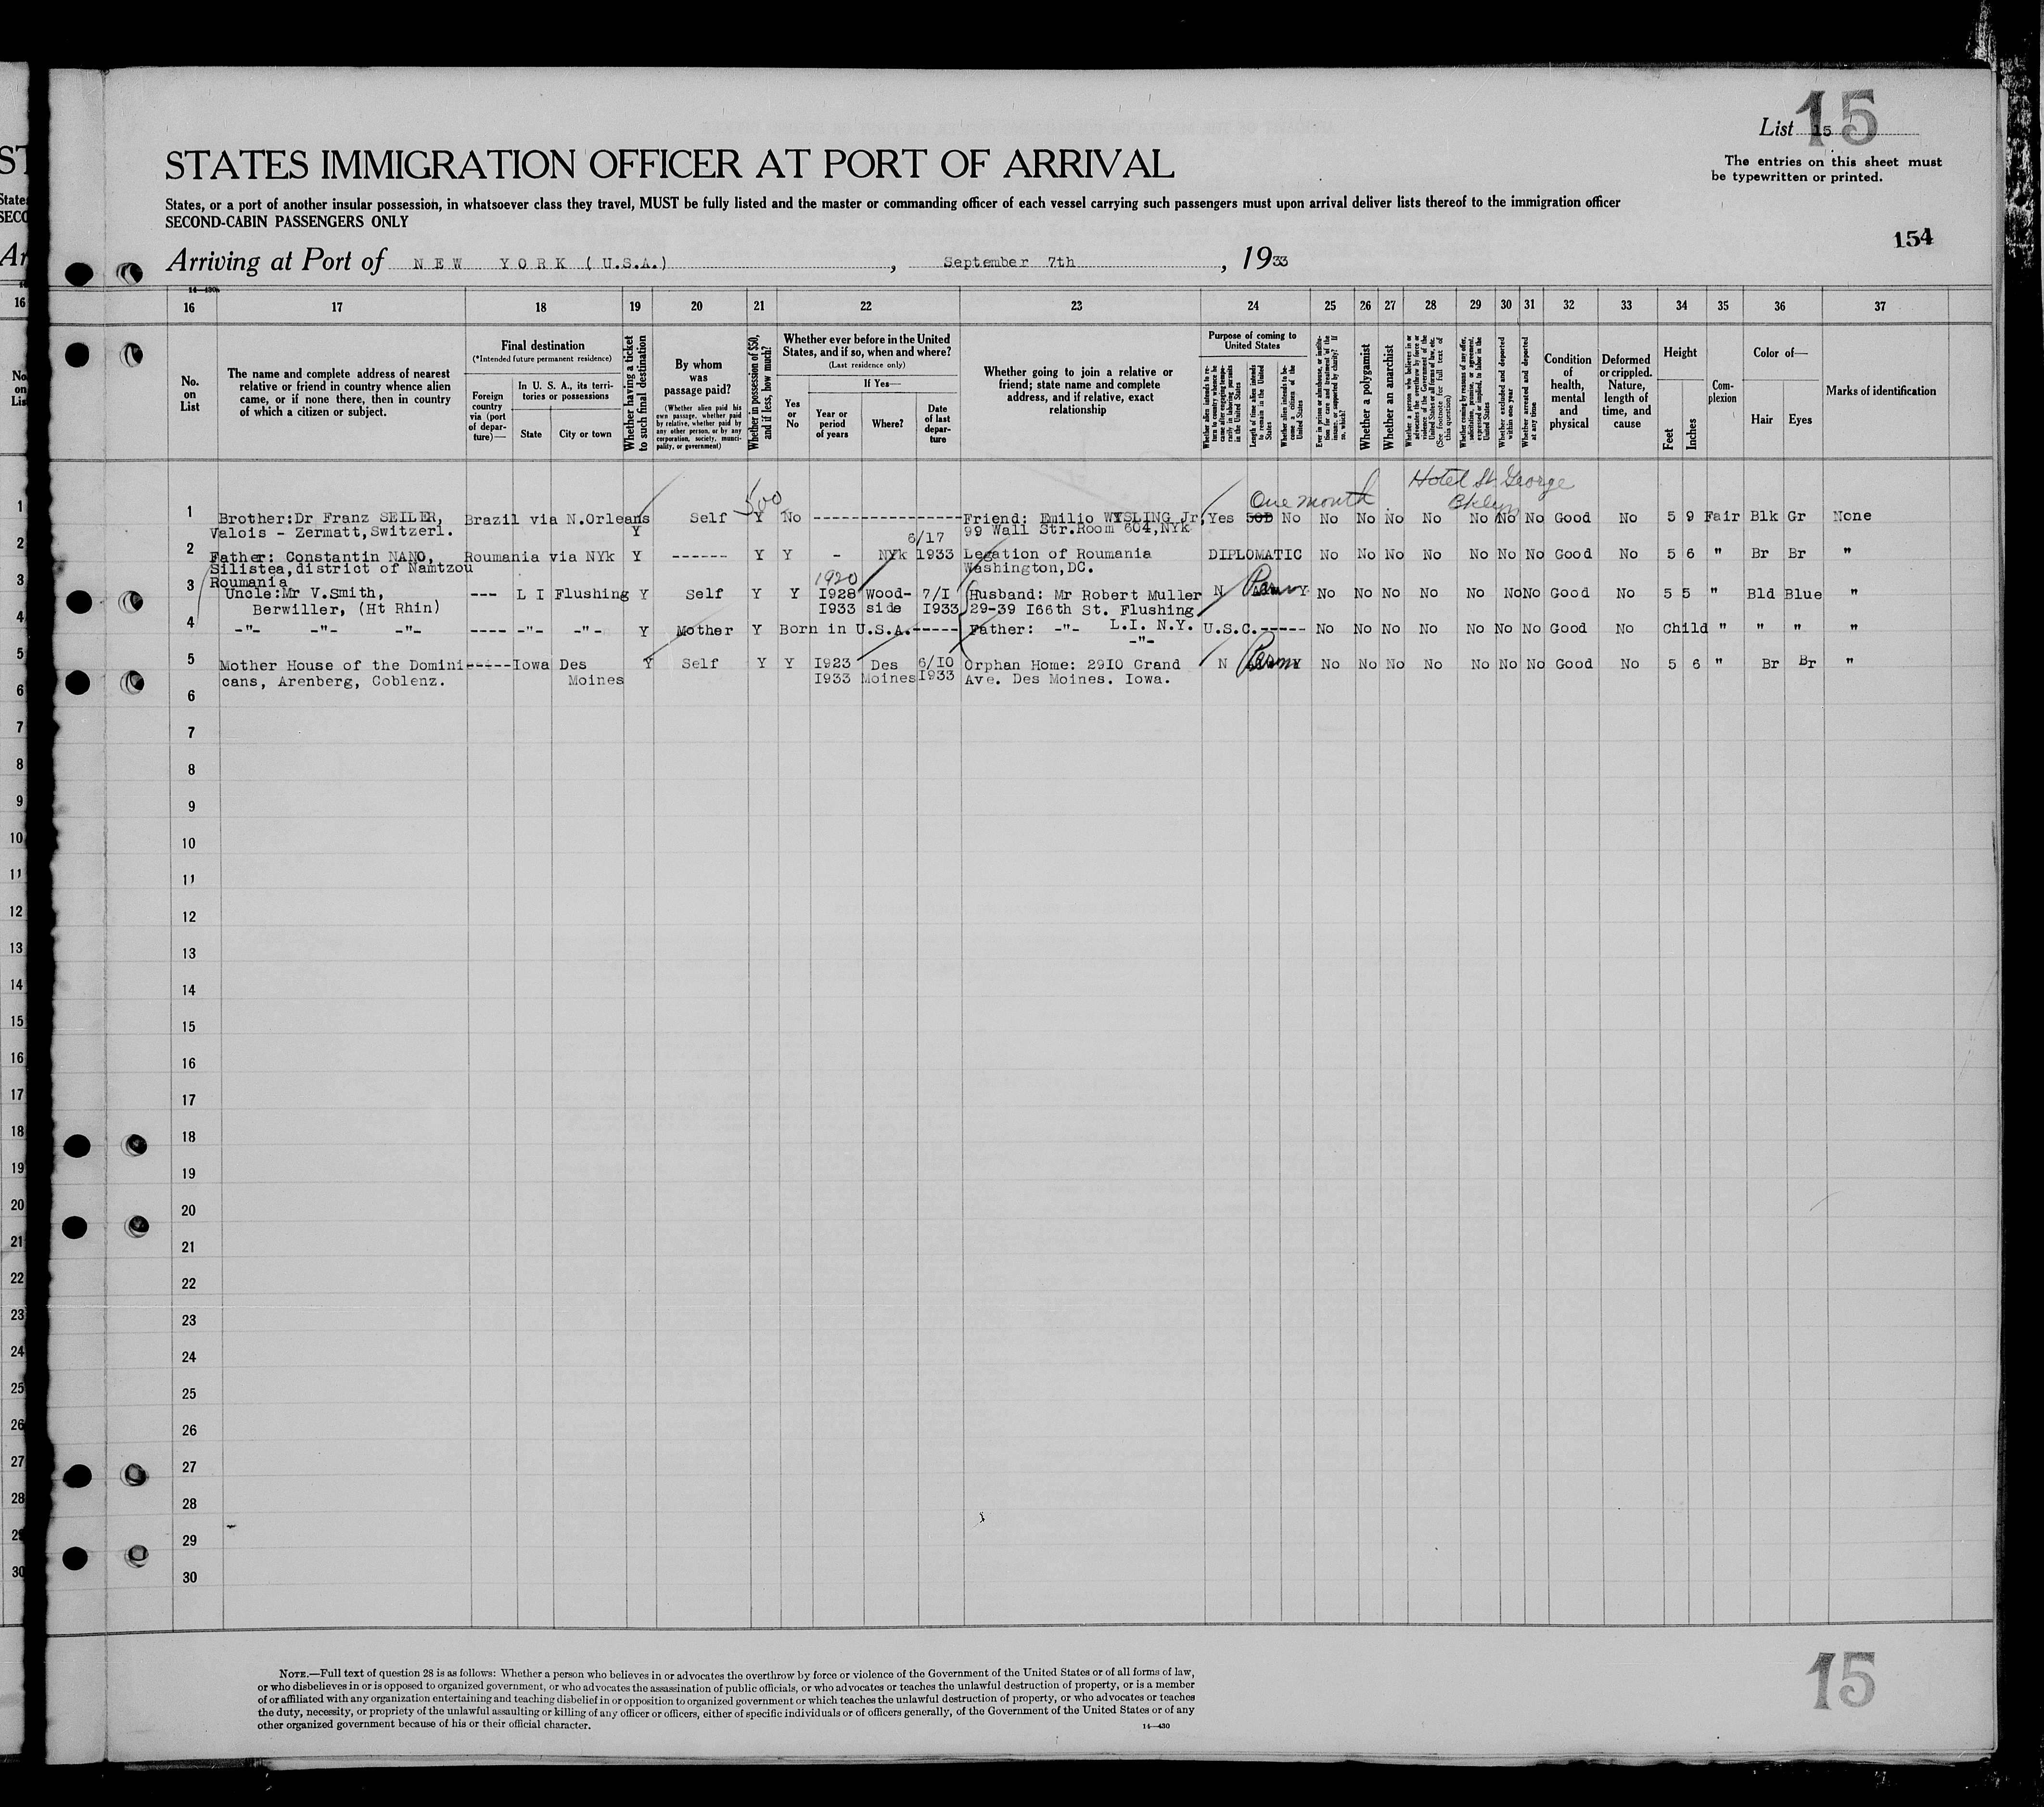 15
List 15
The entries on this sheet must
be typewritten or printed.
STATES IMMIGRATION OFFICER AT PORT OF ARRIVAL
States, or a port of another insular possession, in whatsoever class they travel, MUST be fully listed and the master or commanding officer of each vessel carrying such passengers must upon arrival deliver lists thereof to the immigration officer
SECOND-CABIN PASSENGERS ONLY
154
Arriving at Port of NEW YORK (U.S.A.), September 7th, 1933
14—430
16 17 18 19 20 21 22 23 24 25 26 27 28 29 30 31 32 33 34 35 36 37
No. on List
The name and complete address of nearest relative or friend in country whence alien came, or if none there, then in country of which a citizen or subject.
Final destination
(*Intended future permanent residence)
Foreign country via (port of departure)—
In U. S. A., its territories or possessions
State City or town
Whether having a ticket to such final destination
By whom was passage paid?
(Whether alien paid his own passage, whether paid by relative, whether paid by any other person, or by any corporation, society, municipality, or government)
Whether in possession of $50, and if less, how much?
Whether ever before in the United States, and if so, when and where?
(Last residence only)
Yes or No
If Yes—
Year or period of years Where? Date of last departure
Whether going to join a relative or friend; state name and complete address, and if relative, exact relationship
Purpose of coming to United States
Whether alien intends to return to country whence he came after engaging temporarily in laboring pursuits in the United States
Length of time alien intends to remain in the United States
Whether alien intends to become a citizen of the United States
Ever in prison or almshouse, or institution for care and treatment of the insane, or supported by charity? If so, which?
Whether a polygamist
Whether an anarchist
Whether a person who believes in or advocates the overthrow by force or violence of the Government of the United States or all forms of law, etc. (See footnote for full text of this question)
Whether coming by reasons of any offer, solicitation, promise, or agreement, expressed or implied, to labor in the United States
Whether excluded and deported within one year
Whether arrested and deported at any time
Condition of health, mental and physical
Deformed or crippled. Nature, length of time, and cause
Height
Feet Inches
Complexion
Color of—
Hair Eyes
Marks of identification
500 One month Hotel St. George
Bklyn
1 Brother:Dr Franz SEILER, Brazil via N.Orleans Y Self Y No ---------------- Friend: Emilio WYSLING Jr, Yes 30D No No No No No No No No Good No 5 9 Fair Blk Gr None
Valois - Zermatt,Switzerl. 99 Wall Str.Room 604,NYk
2 Father: Constantin NANO, Roumania via NYk Y ------ Y Y - NYk 6/17 1933 Legation of Roumania DIPLOMATIC No No No No No No No Good No 5 6 " Br Br "
Silistea,district of Namtzou Washington,DC.
Roumania
3 Uncle:Mr V.Smith, --- L I Flushing Y Self Y Y 1920 I928 Wood- 7/I Husband: Mr Robert Muller N Perm Y No No No No No No No Good No 5 5 " Bld Blue "
Berwiller, (Ht Rhin) I933 side I933 29-39 I66th St. Flushing
4 -"- -"- -"- ---- -"- -"- Y Mother Y Born in U.S.A.----- Father: -"- L.I. N.Y. U.S.C.----- No No No No No No No Good No Child " " " "
-"-
5 Mother House of the Domini- ---- Iowa Des Y Self Y Y I923 Des 6/10 Orphan Home: 29I0 Grand N Perm Y No No No No No No No Good No 5 6 " Br Br "
cans, Arenberg, Coblenz. Moines I933 Moines I933 Ave. Des Moines. Iowa.
6
7
8
9
10
11
12
13
14
15
16
17
18
19
20
21
22
23
24
25
26
27
28
29
30
NOTE.—Full text of question 28 is as follows: Whether a person who believes in or advocates the overthrow by force or violence of the Government of the United States or of all forms of law,
or who disbelieves in or is opposed to organized government, or who advocates the assassination of public officials, or who advocates or teaches the unlawful destruction of property, or is a member
of or affiliated with any organization entertaining and teaching disbelief in or opposition to organized government or which teaches the unlawful destruction of property, or who advocates or teaches
the duty, necessity, or propriety of the unlawful assaulting or killing of any officer or officers, either of specific individuals or of officers generally, of the Government of the United States or of any
other organized government because of his or their official character.
14—430
15